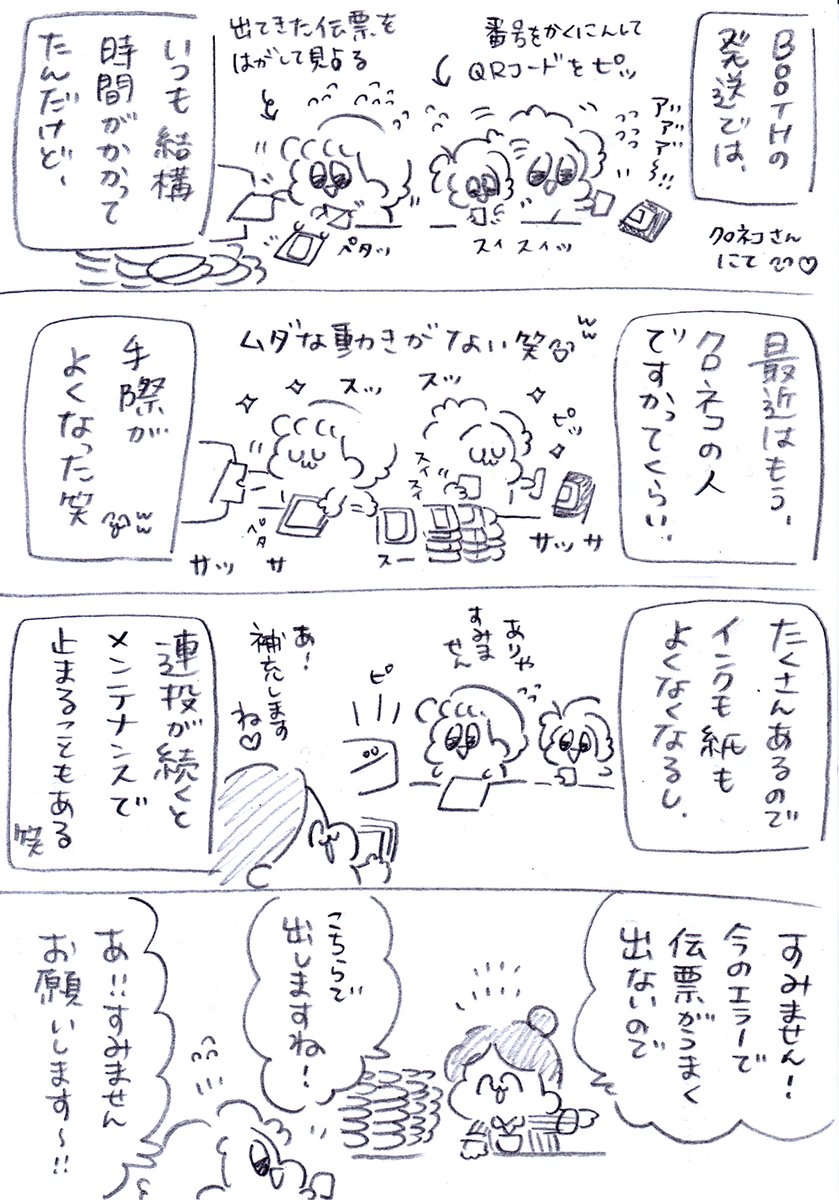 BOOTHの
発送では、
クロネコさん
にて♡
番号をかくにんして
QRコードをピッ
アッ
アッ
アッ
〜!!
スイスイッ
出てきた伝票を
はがして見占る
ペタッ
いつも結構
時間がかかって
たんだけど、
最近はもう、
クロネコの人
ですかってくらい、
ムダな動きがない笑
ww
ピッ
スッ
スッ
スイ
スイ
サッサ
スー
ペタ
サッサ
手際が
よくなった笑
ww
たくさんあるので
インクも紙も
よくなくなるし、
ありゃ
すみま
せん
ピ
あ!
補充します
ね♡
連投が続くと
メンテナンスで
止まることもある
笑
すみません!
今のエラーで
伝票がうまく
出ないので
こちらで
出しますね!
あ!!すみません
お願いします〜!!